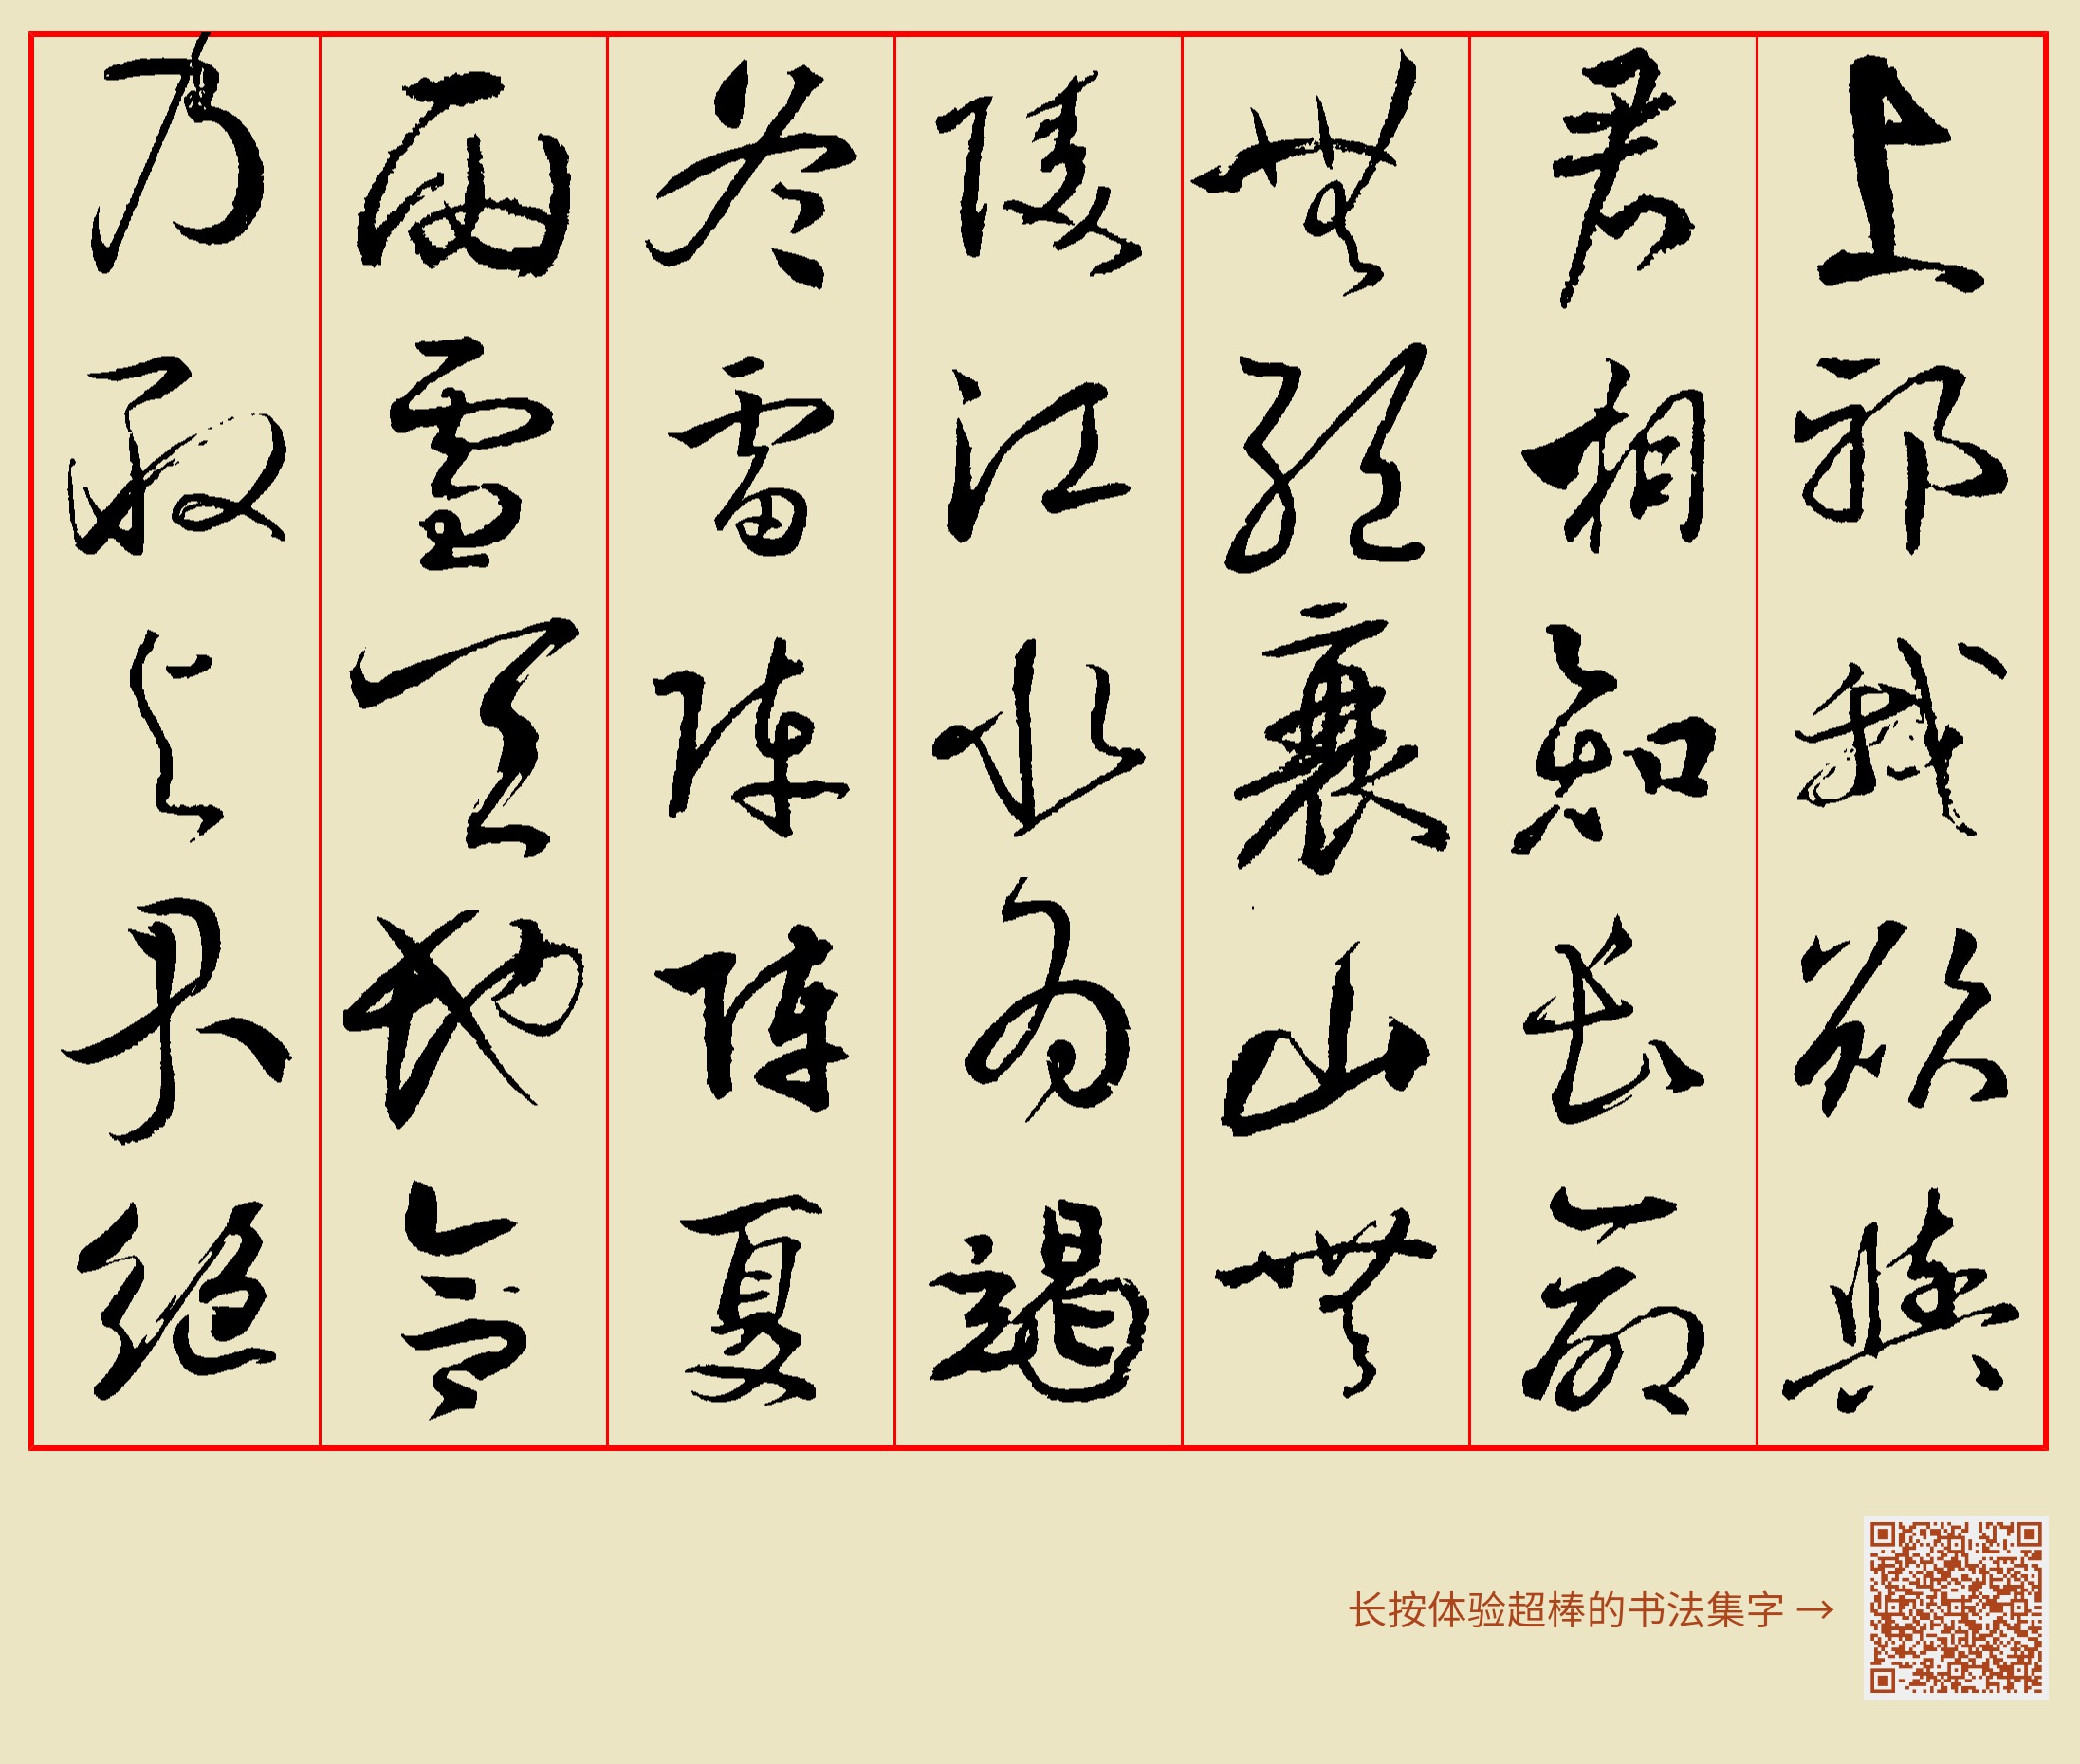 上邪我欲與
君相知長命
無絕衰山無
陵江水為竭
冬雷陣陣夏
雨雪天地合
乃敢与君絕
长按体验超棒的书法集字 →